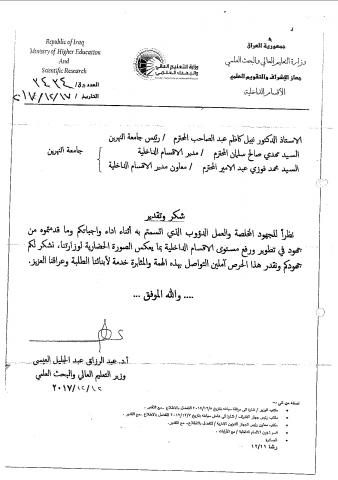 Republic of Iraq
Ministry of Higher Education
And
Scientific Research
وزارة التعليم العالي
والبحث العلمي
جمهورية العراق
وزارة التعليم العالي والبحث العلمي
جهاز الاشراف والتقويم العلمي
الأقسام الداخلية
العدد ق/ ٣٤٣٤
التاريخ / ٢٠١٧/١٢/١٧
الاستاذ الدكتور نبيل كاظم عبد الصاحب المحترم / رئيس جامعة النهرين
السيد محمدي صالح سلمان المحترم / مدير الاقسام الداخلية
السيد محمد فوزي عبد الامير المحترم / معاون مدير الاقسام الداخلية
جامعة النهرين
شكر وتقدير
نظراً للجهود المخلصة والعمل الدؤوب الذي اتسمتم به أثناء اداء واجباتكم وما قدمتموه من
جهود في تطوير ورفع مستوى الاقسام الداخلية بما يعكس الصورة الحضارية لوزارتنا، نشكر لكم
جهودكم ونقدر هذا الحرص آملين التواصل بهذه الهمة والمثابرة خدمة لأبنائنا الطلبة وعراقنا العزيز.
... والله الموفق ...
أ.د. عبد الرزاق عبد الجليل العيسى
وزير التعليم العالي والبحث العلمي
٢٠١٧/١٢/١٢
نسخة منه الى :-
الصادرة
رشا ١٢/٢١